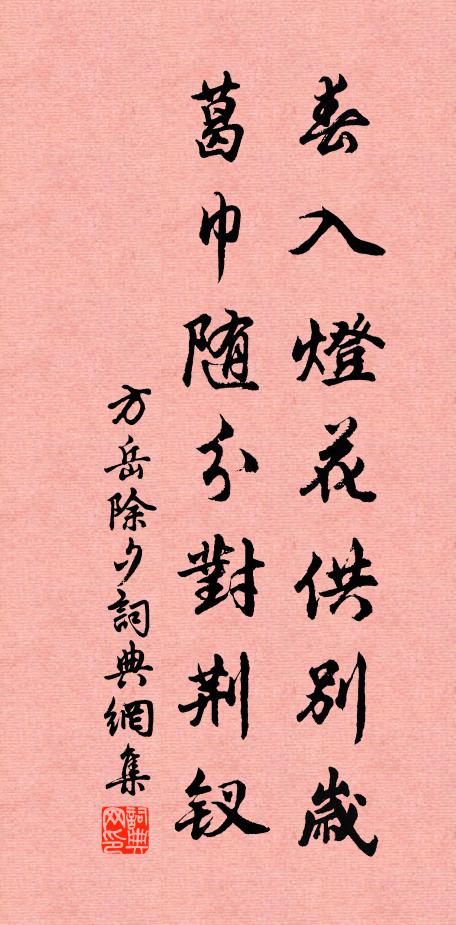 春入燈花供別歲
葛巾隨分對荆釵
方岳除夕詞典網集
詞典网印